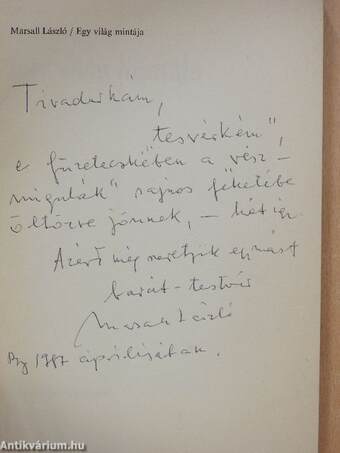 Marsall László / Egy világ mintája
Tivadarkám,
testvérkém",
e füzetecskében a vész –
" sajnos feketébe
öltözve jönnek, –
Azért még egymást
barát-testvér
Marsall László
Bp 1987 áprilisában.
Antikvárium.hu